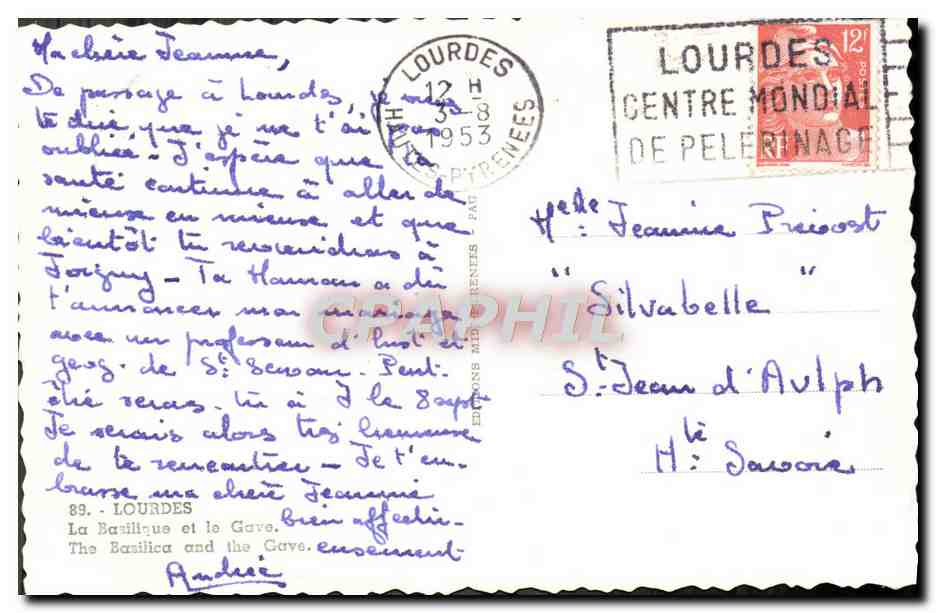 Ma chère Jeannine,
De passage à Lourdes, je veux
te dire, que je ne t'ai pas
oubliée - J'espère que ta
santé continue à aller de
mieux en mieux et que
bientôt tu reviendras à
Joigny - Ta Maman a dû
t'annoncer mon mariage
avec un professeur d'hist et
geog. de St Servan. Peut-
être seras-tu à J le 8 sept
Je serais alors très heureuse
de te rencontrer - Je t'em-
brasse ma chère Jeannine
bien affectu-
eusement
Andrée
89. - LOURDES
La Basilique et le Gave.
The Basilica and the Gave.
EDITIONS MID PYRENEES PAU
LOURDES
12 H
3-8
1953
HAUTES-PYRENEES
LOURDES
CENTRE MONDIAL
DE PELERINAGE
12F
POSTES
RF
Melle: Jeannine Prévost
"Silvabelle"
St-Jean d'Aulph
Hte: Savoie
CPAPHIL